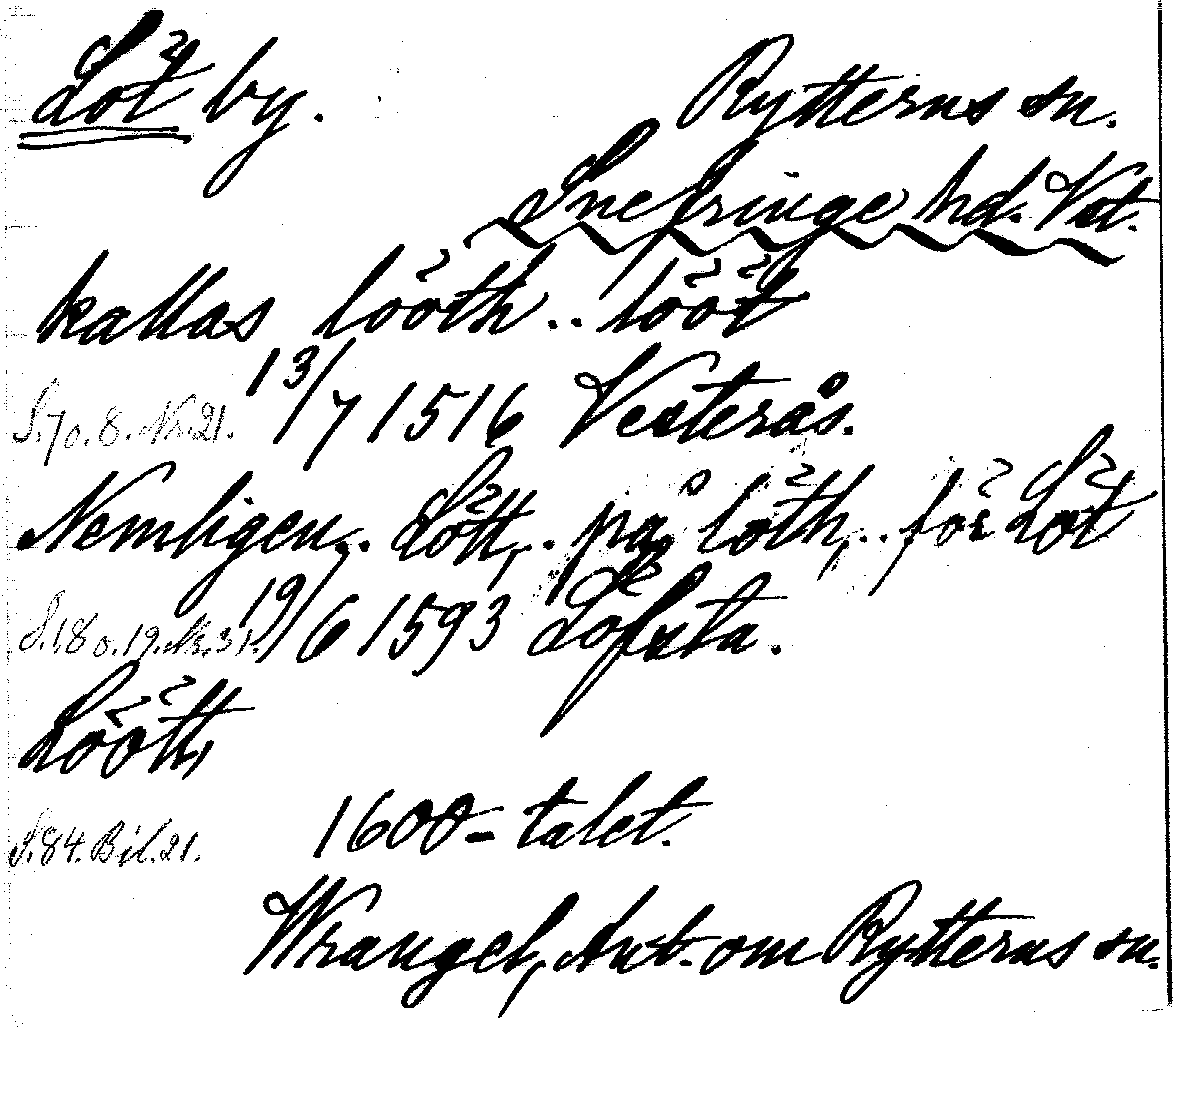 Löt by. Rytterns sn.
Snefringe hd. Vst.
kallas lööth .. lööt
S. 7 o. 8. Nr. 21. 13/7 1516 Vesterås.
Nemligen .. Lött, .. på löth, .. för Löt
S. 18 o. 19. Nr. 31. 19/6 1593 Löfsta.
Löött,
S. 84. Bil. 21. 1600-talet.
Wrangel, Ant. om Rytterns sn.